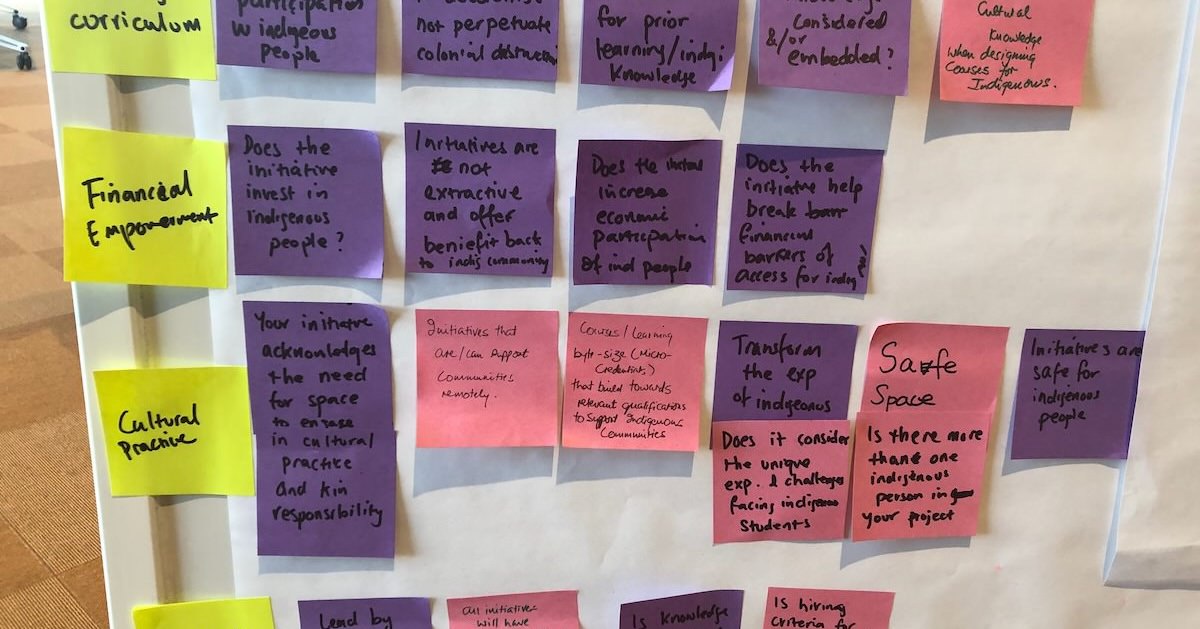 curriculum
participation
w indigeous
people
not perpetuate
colonial
for prior
learning/indgi
Knowledge
considered
&/or
embedded?
Cultural
Knowledge
when designing
Courses for
Indigenous.
Financial
Empowerment
Does the
initiative
invest in
indigenous
people?
Initiatives are
not
extractive
and offer
beniefit back
to indig community
Does the
increase
economic
participation
of ind people
Does the
initiative help
break
financial
barriers of
access for indig
Cultural
practive
Your initiatve
acknowledges
the need
for space
to engage
in cultural
practice
and kin
responsibility
Initiatives that
are/can support
Communities
remotely.
Courses/Learning
byte-size (Micro-
Credentials)
that build towards
relevant qualifications
to support Indigenous
Communities
Transform
the exp
of indgeonus
Does it consider
the unique
exp. & challenges
facing indigenous
Students
Safe
Space
Is there more
than one
indigenous
person in
your project
Initiatives are
safe for
indigenous
people
Lead by
all initiatives
will have
Is Knowledge
Is hiring
criteria for